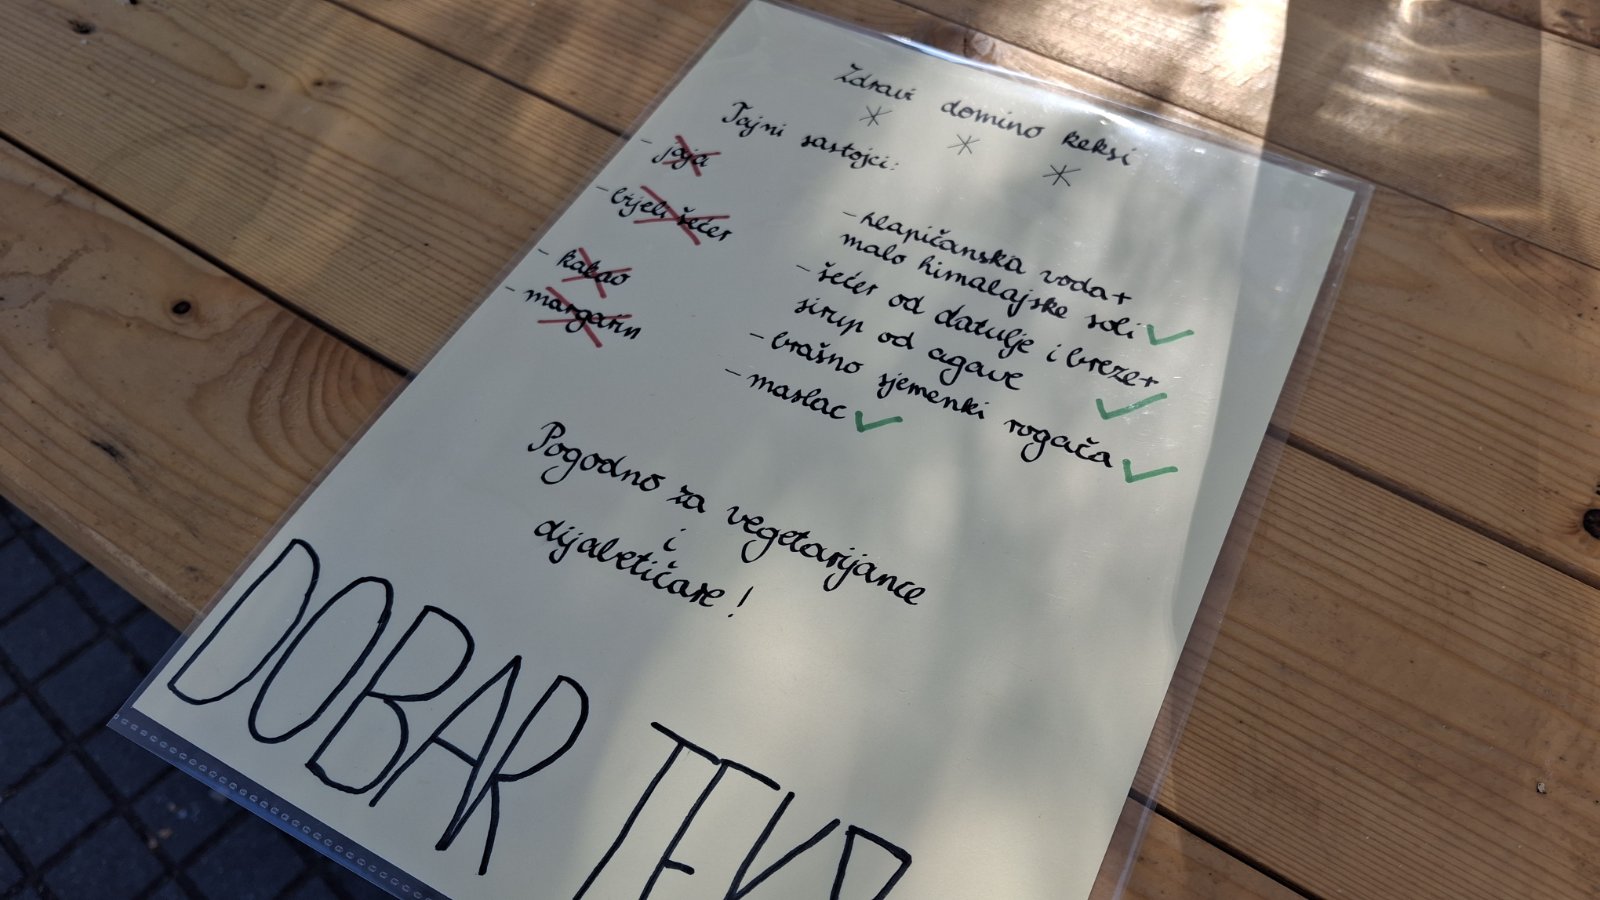 Zdravi domino keksi
Tajni sastojci:
- jaja
- bijeli šećer
- kakao
- margarin
- klapičanska voda +
malo himalajske soli
- šećer od datulje i breze +
sirup od agave
- brašno sjemenki rogača
- maslac
Pogodno za vegetarijance
i
dijabetičare!
DOBAR TEK